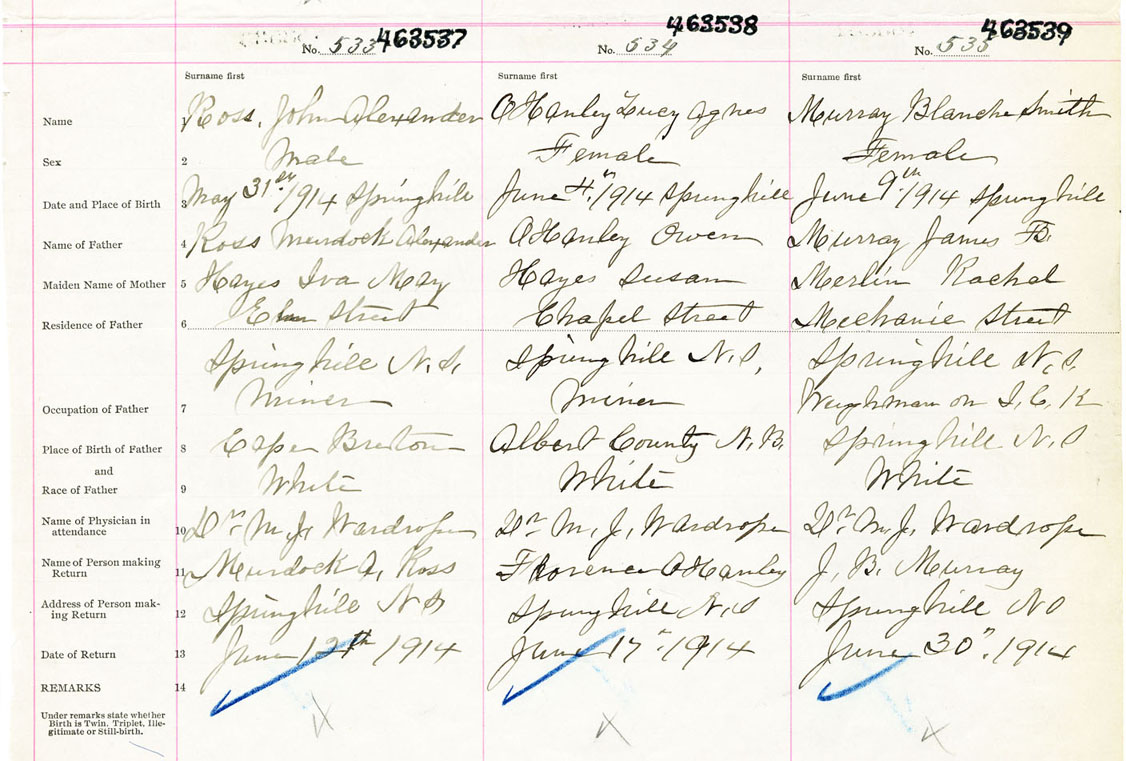 463537 463538 463539
No. 533 No. 534 No. 535
Surname first Surname first Surname first
Name 1 Ross, John Alexander O'Hanley Lucy Agnes Murray Blanche Smith
Sex 2 Male Female Female
Date and Place of Birth 3 May 31st 1914 Springhill June 4th 1914 Springhill June 9th 1914 Springhill
Name of Father 4 Ross Murdock Alexander O'Hanley Owen Murray James B.
Maiden Name of Mother 5 Hayes Iva May Hayes Susan Merlin Rachal
Residence of Father 6 Elm Street Chapel Street Mechanic Street
Springhill N.S. Springhill N.S. Springhill N.S.
Occupation of Father 7 Miner Miner Weighman on I.C.R
Place of Birth of Father 8 Cape Breton Albert County N.B. Springhill N.S
and
Race of Father 9 White White White
Name of Physician in
attendance 10 Dr. M. J. Wardrope Dr. M. J. Wardrope Dr. M. J. Wardrope
Name of Person making
Return 11 Murdock A. Ross Florence O'Hanley J. B. Murray
Address of Person mak-
ing Return 12 Springhill N S Springhill N.S Springhill N S
Date of Return 13 June 12th 1914 June 17th 1914 June 30th 1914
REMARKS 14
Under remarks state whether
Birth is Twin, Triplet, Ille-
gitimate or Still-birth.